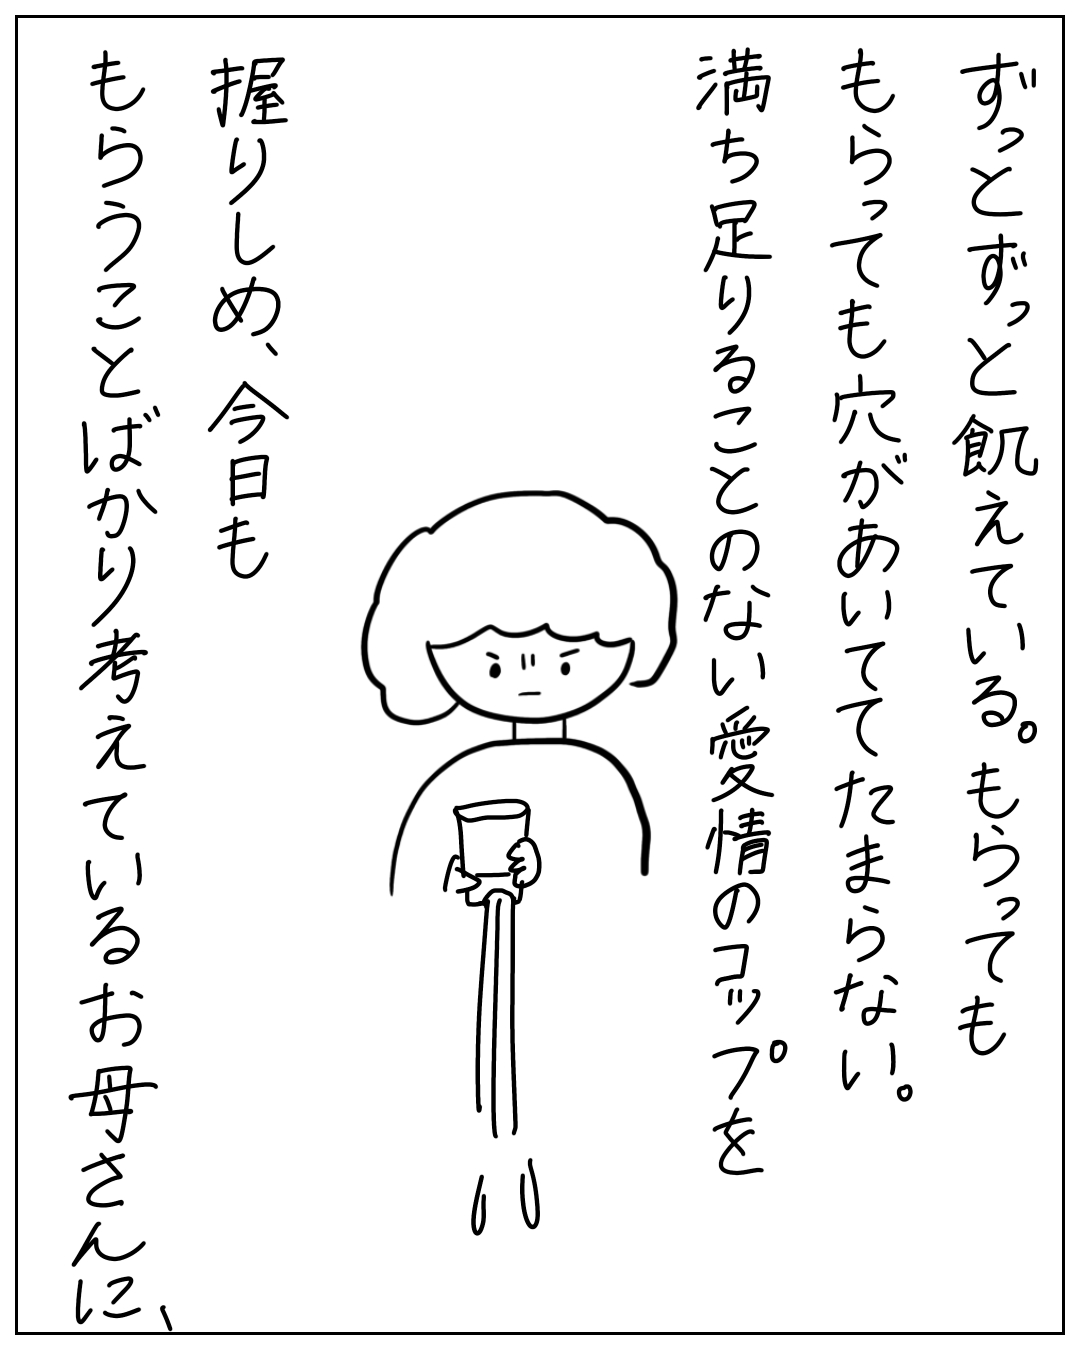 ずっとずっと飢えている。もらっても
もらっても穴があいててたまらない。
満ち足りることのない愛情のコップを
握りしめ、今日も
もらうことばかり考えているお母さんに、